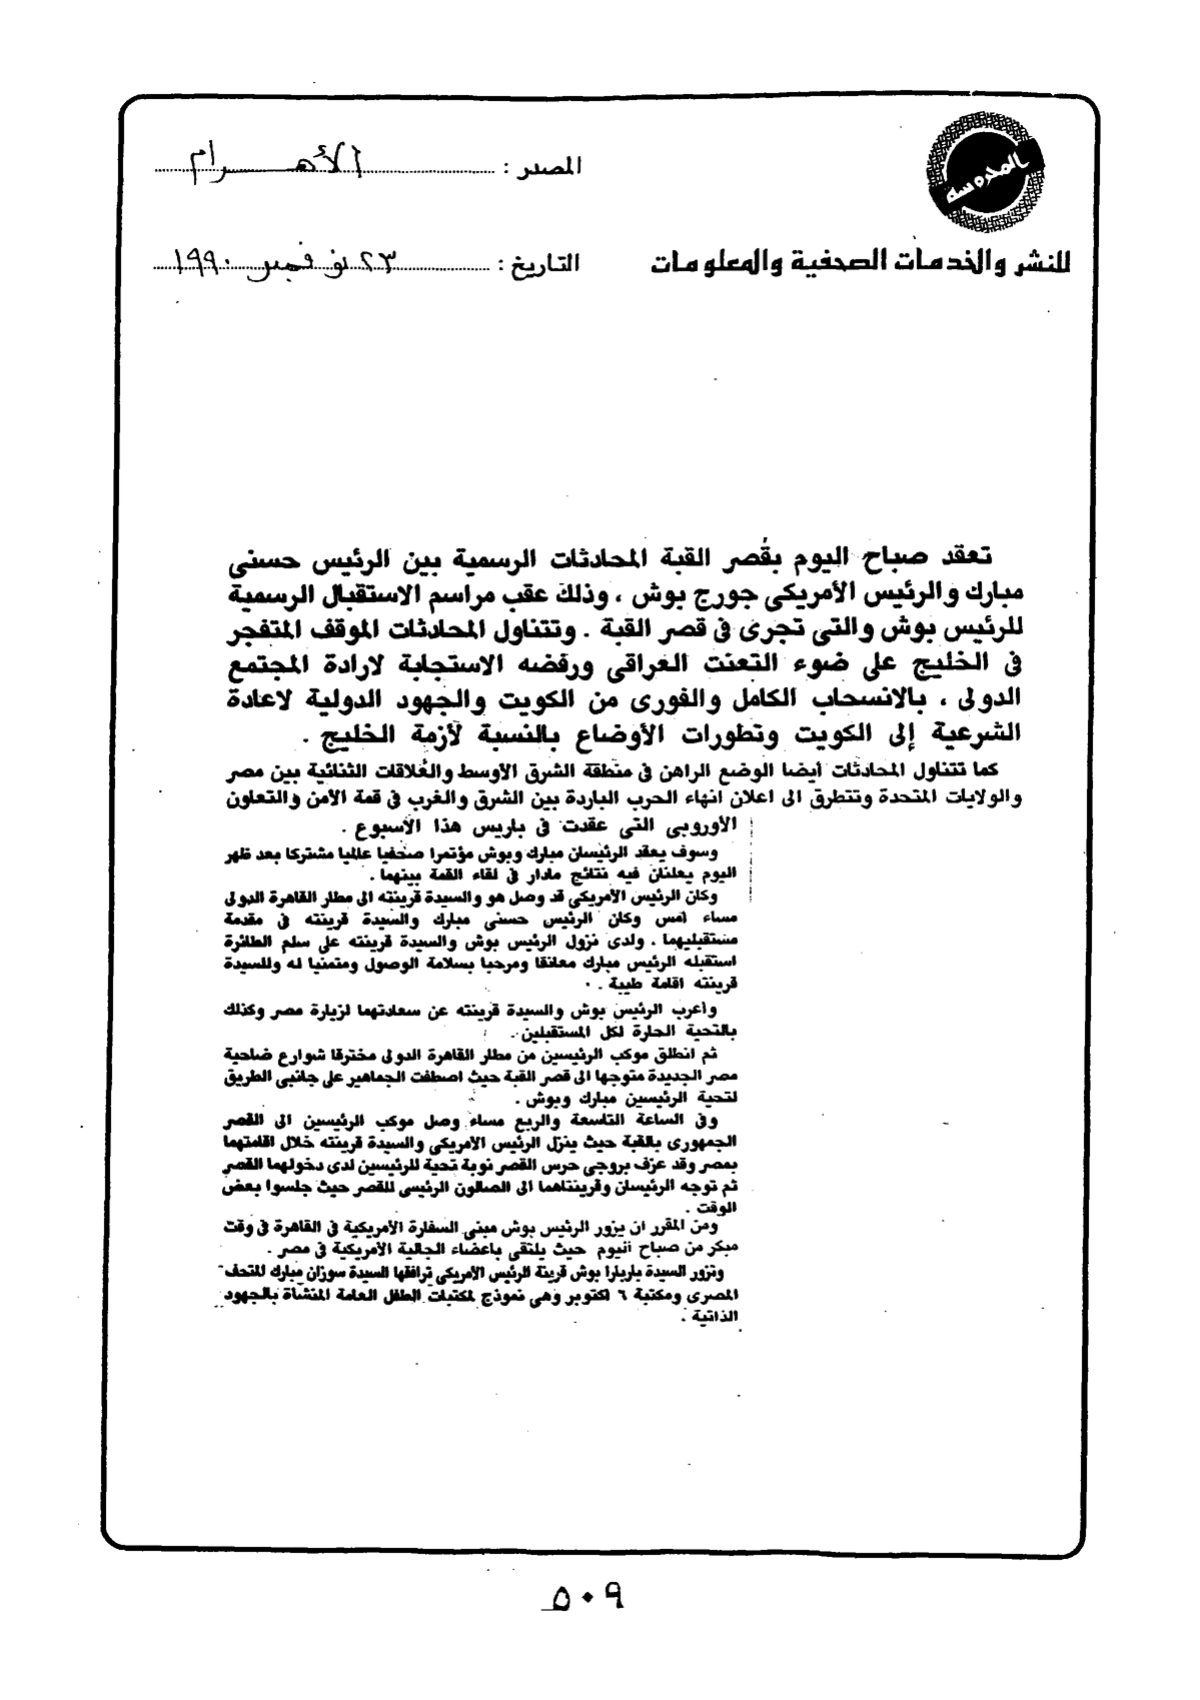 المحروسة
المصدر : الأهــرام
للنشر والخدمات الصحفية والمعلومات
التاريخ : ٢٣ نوفمبر ١٩٩٠
تعقد صباح اليوم بقصر القبة المحادثات الرسمية بين الرئيس حسنى
مبارك والرئيس الأمريكى جورج بوش ، وذلك عقب مراسم الاستقبال الرسمية
للرئيس بوش والتى تجرى فى قصر القبة . وتتناول المحادثات الموقف المتفجر
فى الخليج على ضوء التعنت العراقى ورفضه الاستجابة لارادة المجتمع
الدولى ، بالانسحاب الكامل والفورى من الكويت والجهود الدولية لاعادة
الشرعية إلى الكويت وتطورات الأوضاع بالنسبة لأزمة الخليج .
كما تتناول المحادثات أيضا الوضع الراهن فى منطقة الشرق الأوسط والعلاقات الثنائية بين مصر
والولايات المتحدة وتتطرق الى اعلان انهاء الحرب الباردة بين الشرق والغرب فى قمة الأمن والتعاون
الأوروبى التى عقدت فى باريس هذا الأسبوع .
وسوف يعقد الرئيسان مبارك وبوش مؤتمرا صحفيا عالميا مشتركا بعد ظهر
اليوم يعلنان فيه نتائج مادار فى لقاء القمة بينهما .
وكان الرئيس الأمريكى قد وصل هو والسيدة قرينته الى مطار القاهرة الدولى
مساء أمس وكان الرئيس حسنى مبارك والسيدة قرينته فى مقدمة
مستقبليهما . ولدى نزول الرئيس بوش والسيدة قرينته على سلم الطائرة
استقبله الرئيس مبارك معانقا ومرحبا بسلامة الوصول ومتمنيا له وللسيدة
قرينته اقامة طيبة .
وأعرب الرئيس بوش والسيدة قرينته عن سعادتهما لزيارة مصر وكذلك
بالتحية الحارة لكل المستقبلين .
ثم انطلق موكب الرئيسين من مطار القاهرة الدولى مخترقا شوارع ضاحية
مصر الجديدة متوجها الى قصر القبة حيث اصطفت الجماهير على جانبى الطريق
لتحية الرئيسين مبارك وبوش .
وفى الساعة التاسعة والربع مساء وصل موكب الرئيسين الى القصر
الجمهورى بالقبة حيث ينزل الرئيس الأمريكى والسيدة قرينته خلال اقامتهما
بمصر وقد عزف بروجى حرس القصر نوبة تحية للرئيسين لدى دخولهما القصر
ثم توجه الرئيسان وقرينتاهما الى الصالون الرئيسى للقصر حيث جلسوا بعض
الوقت .
ومن المقرر ان يزور الرئيس بوش مبنى السفارة الأمريكية فى القاهرة فى وقت
مبكر من صباح اليوم حيث يلتقى باعضاء الجالية الأمريكية فى مصر .
وتزور السيدة باربارا بوش قرينة الرئيس الأمريكى ترافقها السيدة سوزان مبارك المتحف
المصرى ومكتبة ٦ اكتوبر وهى نموذج لمكتبات الطفل العامة المنشأة بالجهود
الذاتية .
٥٠٩